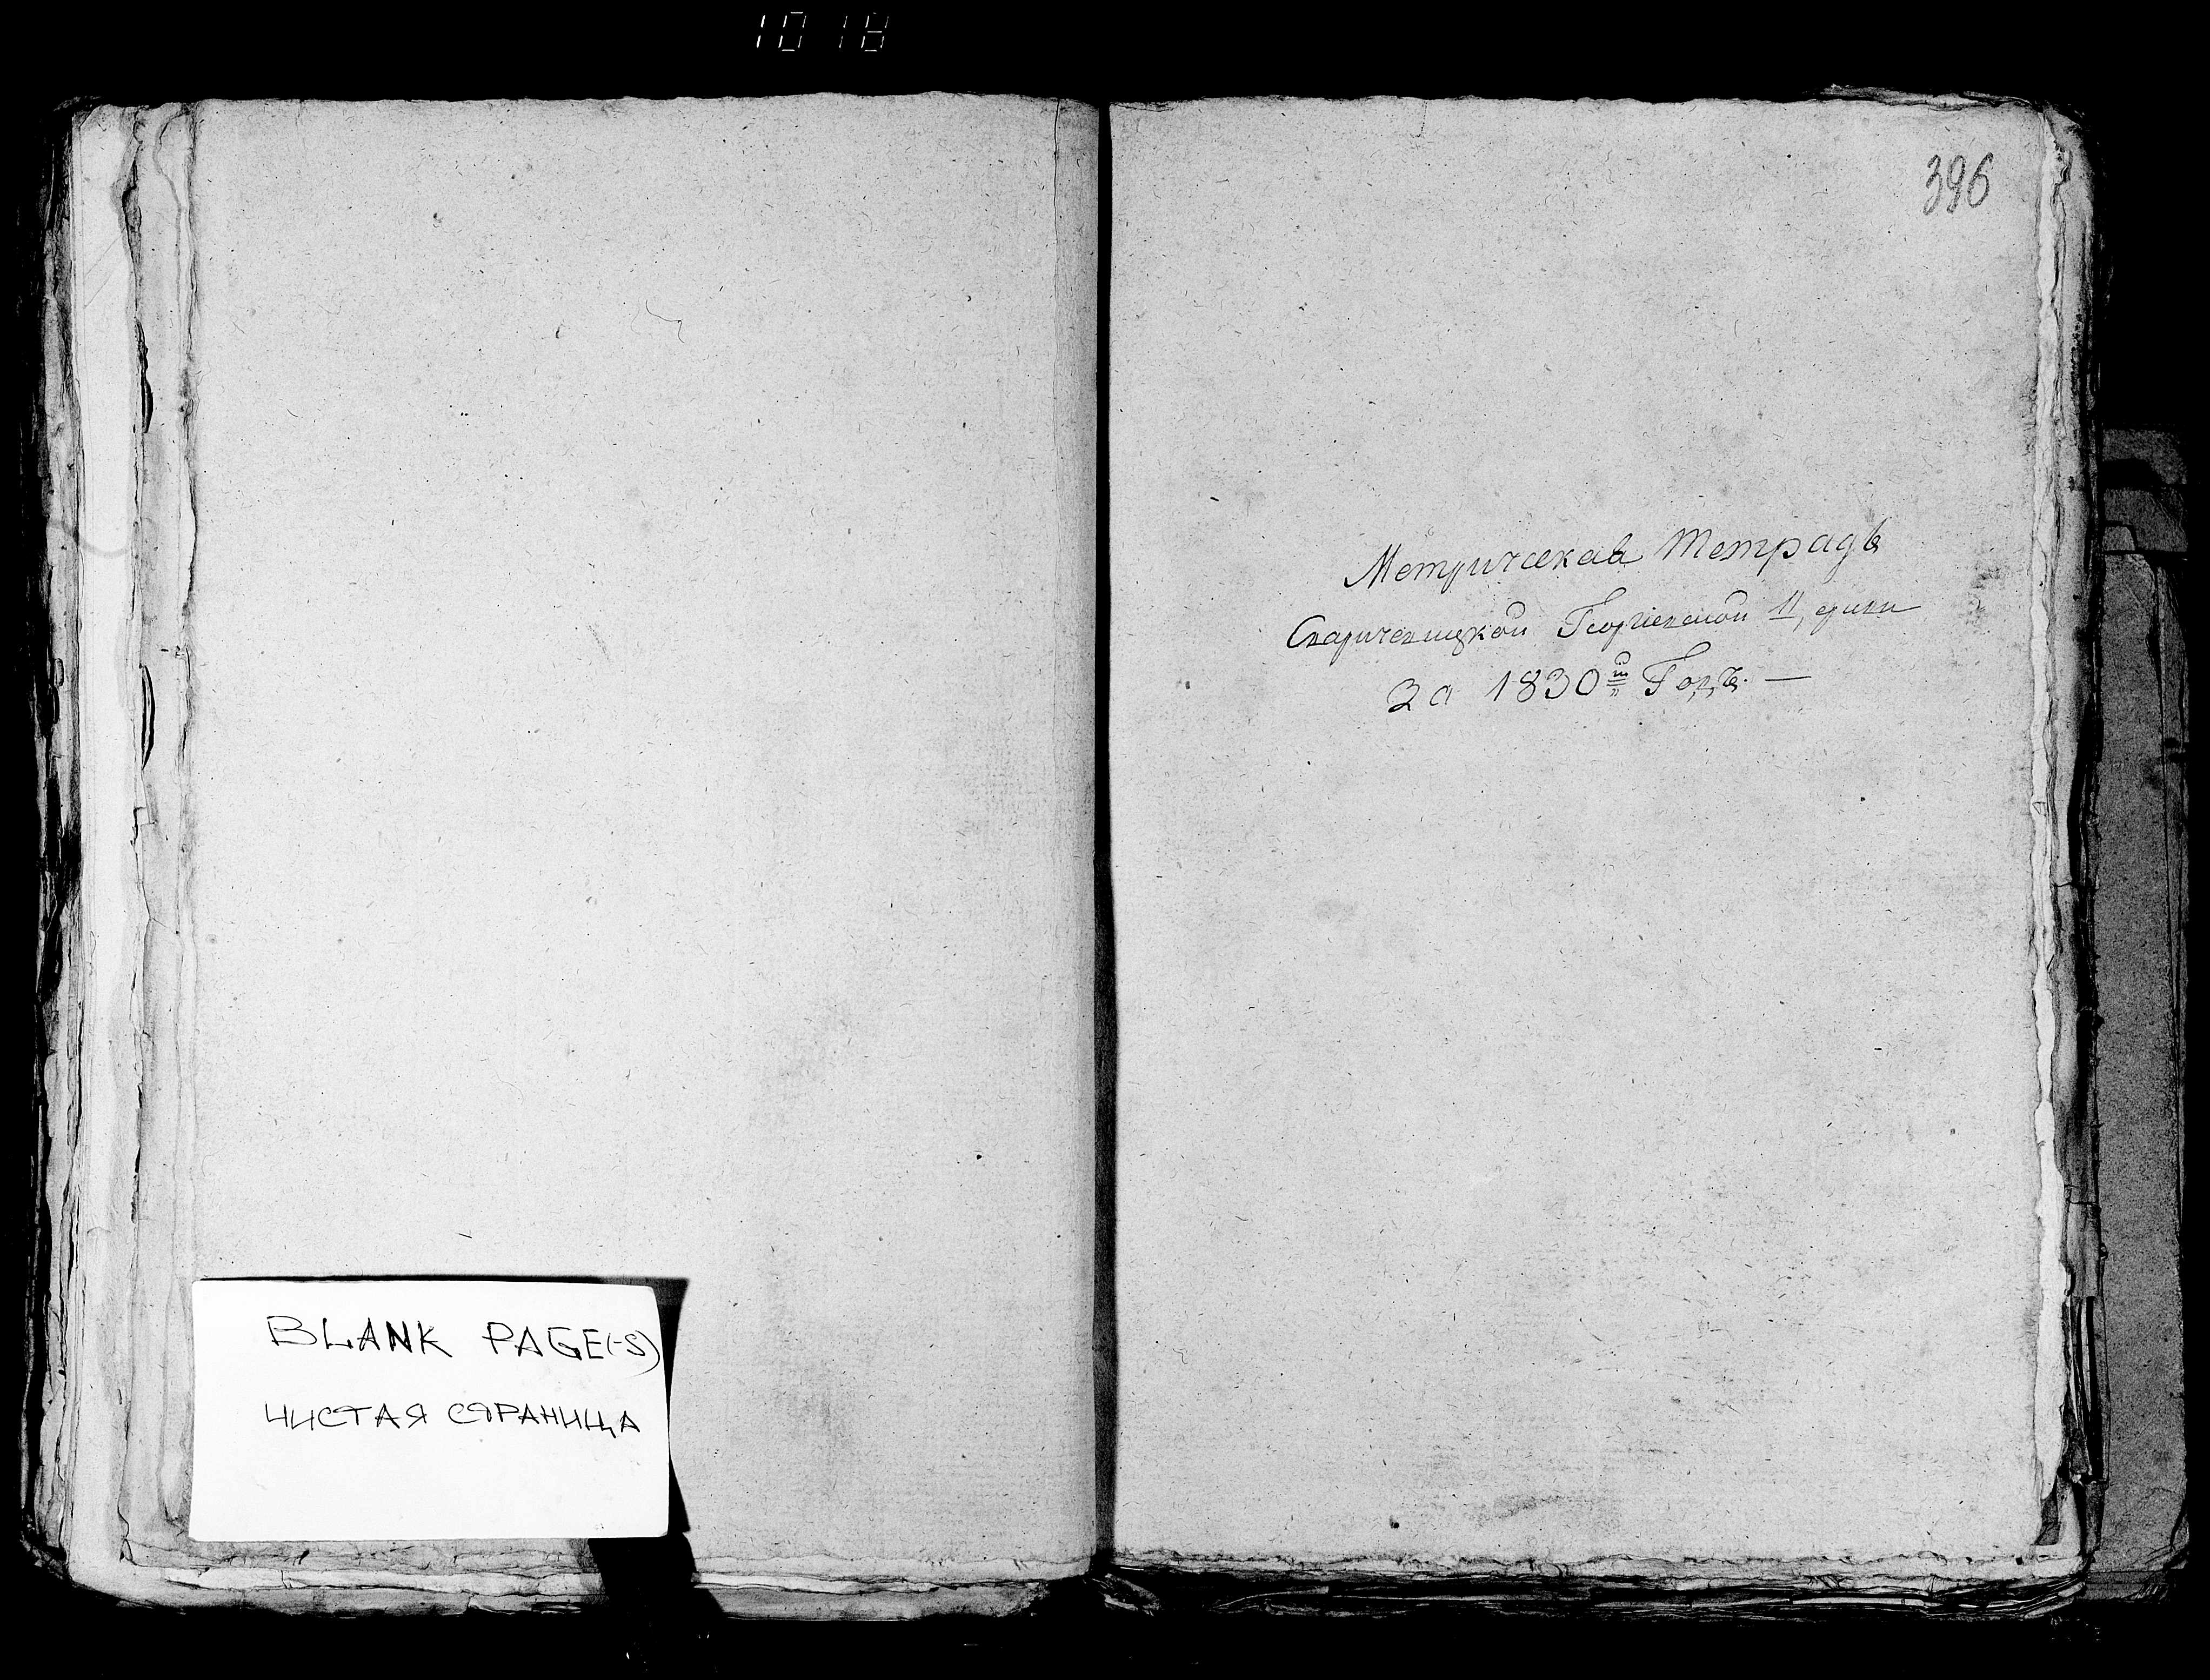 1018
396
Метрическая Тетрадь
Сваричевицкой Георгиевской Церкви
За 1830й Годъ. —
BLANK PAGE(-S)
ЧИСТАЯ СТРАНИЦА